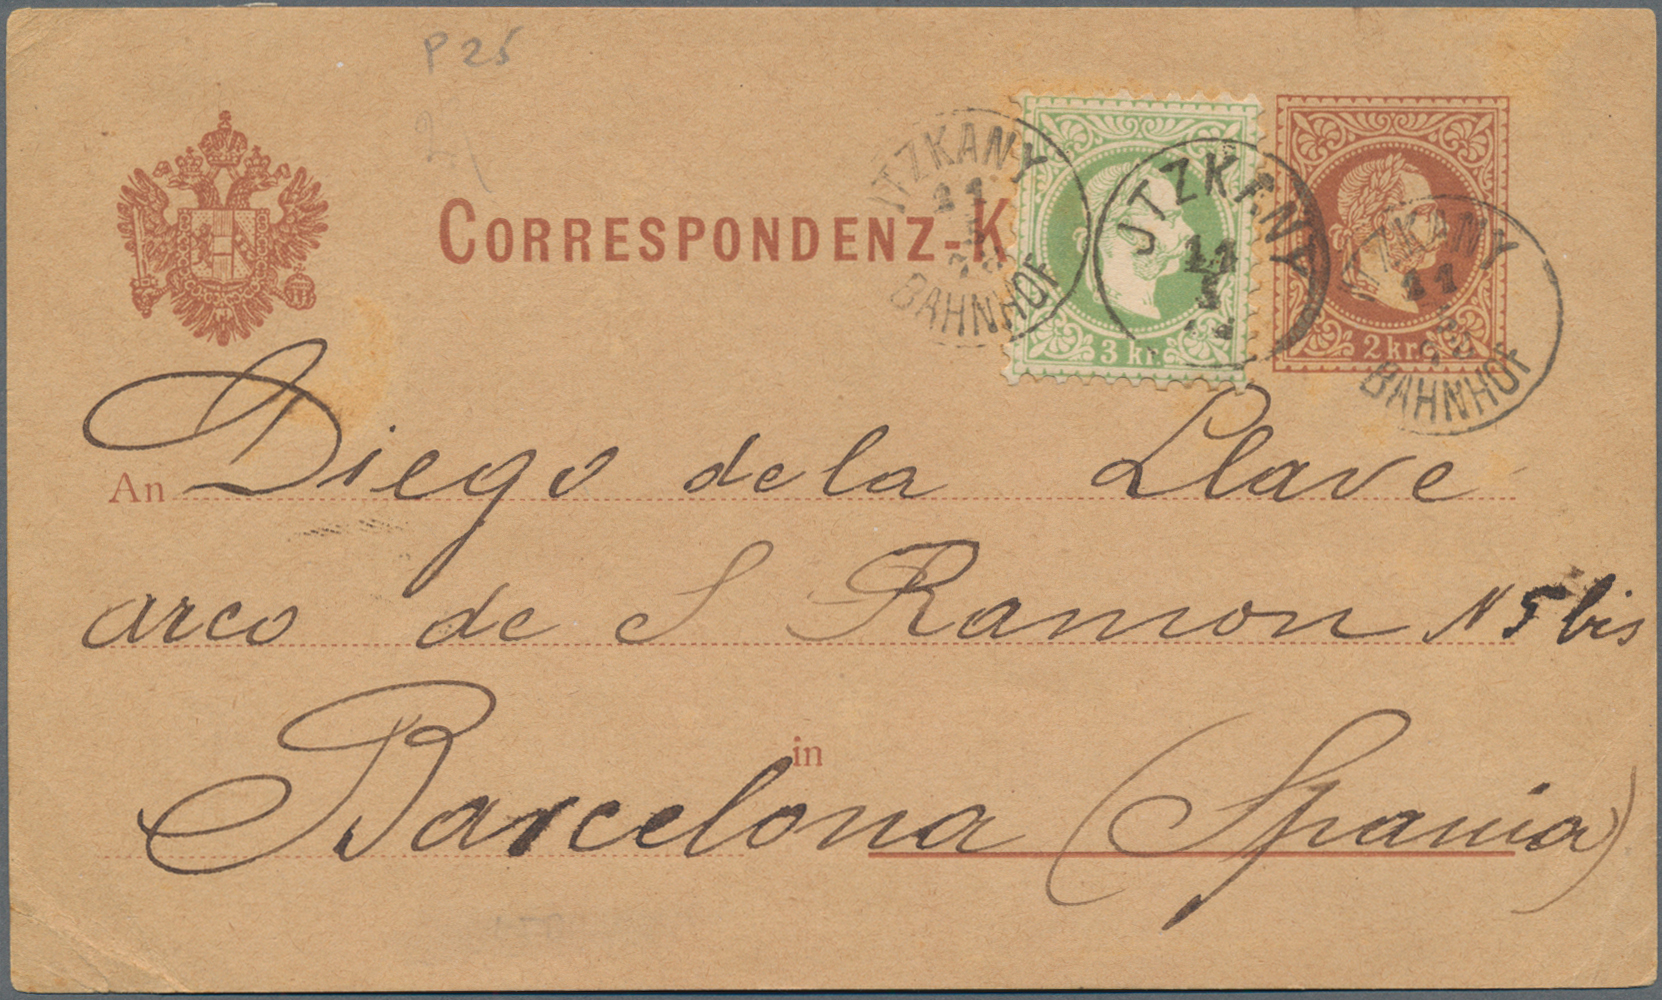 P 25
CORRESPONDENZ-K
ITZKANY
11
BAHNHOF
ITZKANY
11
3 kr.
ITZKANY
11
BAHNHOF
2 kr.
An Diego de la Llave
arco de S Ramon N 5 bis
in
Barcelona (Spania)